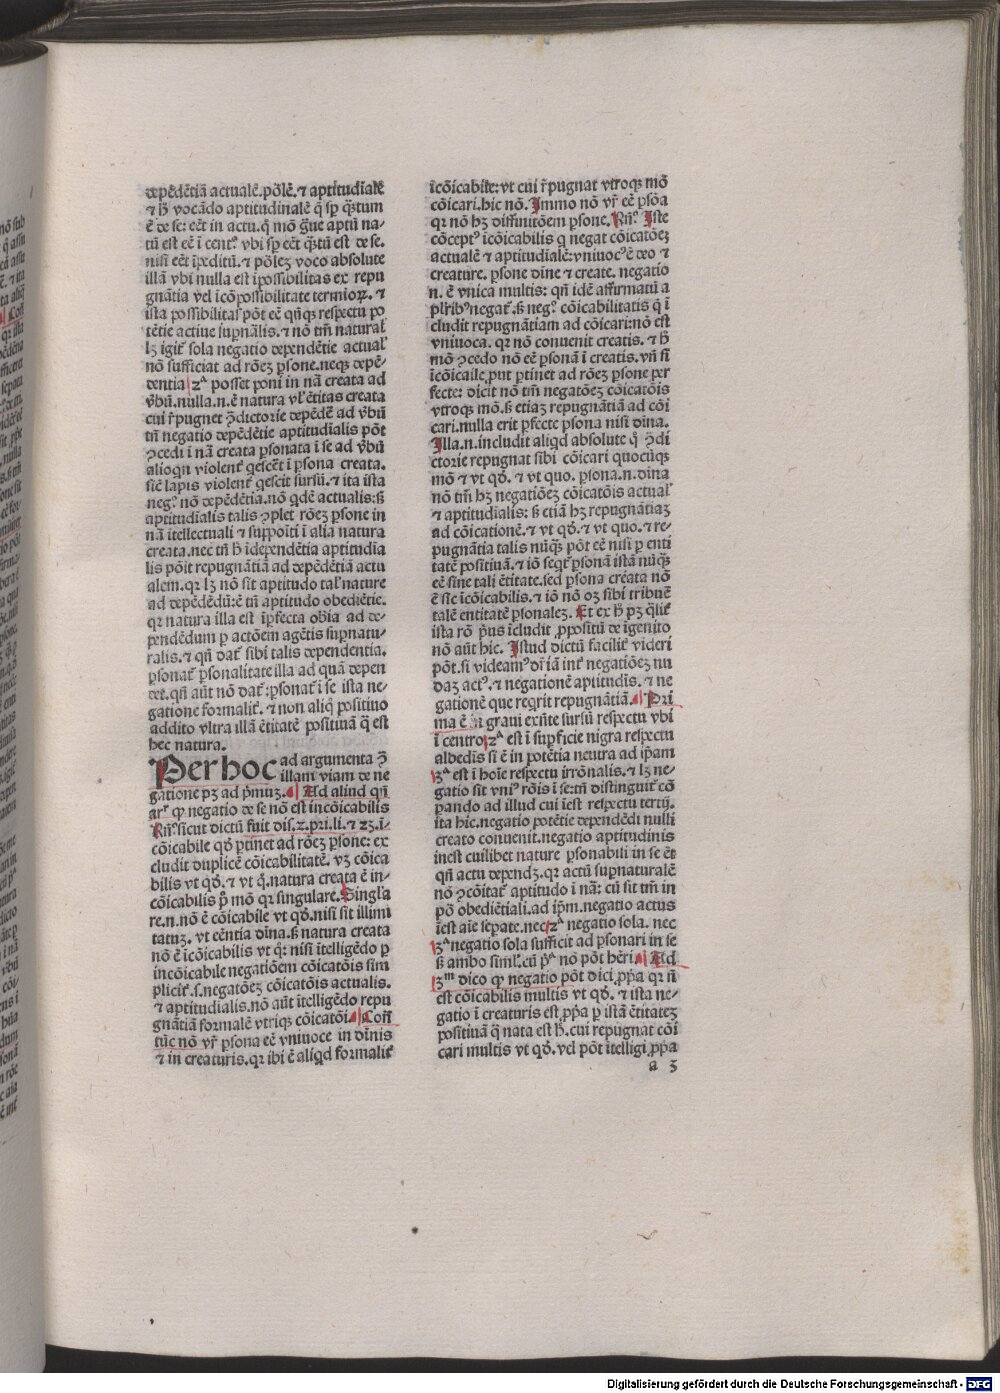 depēdētiā actualē.pōlē.⁊ aptitudīalē
⁊ ħ vocādo aptitudinalē q̄ sp q̄ꝫtum
ē de se: eēt in actu.q̄ mō gͣue aptū na-
tū est eē ī centͦ. vbi sp eēt q̄ꝫtū est de se.
nisi eēt īpeditū.⁊ pōleꝫ voco absolute
illā vbi nulla est īpossibilitas ex repu
gnātia vel īcōpossibilitate termioꝝ. ⁊
ista possibilitas pōt eē qn̄qꝫ respectu po
tētie actiue supnālis.⁊ nō tm̄ naturaľ
lꝫ igit̄ sola negatio dependētie actuaľ
nō sufficiat ad rōeꝫ psone.neqꝫ depē-
dentia 2ᵃ posset poni in nā creata ad
v̄bū.nulla.n.ē natura vľ ētitas creata
cui r̄pugnet ꝯdictorie depēdē ad v̄bū
tn̄ negatio depēdētie aptitudīalis pōt
ꝯcedi ī nā creata psonata ī se ad v̄bū
alioqn violent̄ q̄escēt ī psona creata.
siē lapis violent̄ q̄escit sursū.⁊ ita ista
negͦ? nō depēdētia.nō qdē actualis:ꝭ
aptitudīalis talis ꝯplet rōeꝫ psone in
nā ītellectuali ⁊ suppoīti ī alia natura
creata.nec tn̄ ħ īdependētia aptitudīa
lis pōit repugnātiā ad depēdētiā actu
alem.qr lꝫ nō sit aptitudo taľ nature
ad depēdēdū:ē tn̄ aptitudo obediētie.
qr natura illa est īpfecta obīa ad de-
pendēdum p actōem agētis supnatu-
ralis.⁊ qn̄ dat̄ sibi talis dependentia.
psonat̄ psonalitate illa ad quā depen
det.qn̄ aūt nō dat̄:psonat̄ ī se ista ne-
gatione formalit̄.⁊ non aliq̄ positiuo
addito vltra illā ētitatē positiuā q̄ est
hec natura.
Per hoc ad argumenta ꝯ̄
illam viam de ne
gatione pꝫ ad p̄muꝫ. Ad aliud qn̄
arͬ ꝙ negatio de se nō est incōicabilis
Rn̄ͦ.sicut dictū fuit dis.2.pri.li.⁊ 23.ī-
cōicabile qđ ptinet ad rōeꝫ psone: ex
cludit duplicē cōicabilitatē. vꝫ cōica
bilis vt qđ.⁊ vt q̄.natura creata ē in-
cōicabilis p̄ mō qr singulare.Singla
re.n.nō ē cōicabile vt qđ.nisi sit illimi
tatuꝫ. vt cēntia dīna.ꝭ natura creata
nō ē īcōicabilis vt q̄: nisi ītelligēdo p
incōicabile negatiōem cōicatōis sim
plicit̄.s.negatōeꝫ cōicatōis actualis.
⁊ aptitudialis.nō aūt ītelligēdo repu
gnātiā formalē vtriqꝫ cōicatōi. Con̄
tūc nō vr̄ psona eē vniuoce in dīnis
⁊ in creaturis.qr ibi ē aliqd formalit̄
īcōicabile:vt cui r̄pugnat vtroqꝫ mō
cōicari.hic nō.Immo nō vr̄ eē psōa
qr nō hꝫ diffinitōem psone. Rn̄ͦ. Iste
cōceptꝰ īcōicabilis q negat cōicatōeꝫ
actualē ⁊ aptitudialē:vniuocꝰ ē deo ⁊
creature. psone dīne ⁊ create. negatio
n. ē vnica multis: qn̄ idē affirmatū a
plribꝰ negat̄.ꝭ negͦ. cōicabilitatis q̄ ī
cludit repugnātiam ad cōicari:nō est
vniuoca. qr nō conuenit creatis. ⁊ ħ
mō ꝯcedo nō eē psonā ī creatis.vn̄ si
īcōicaile,put ptinet ad rōeꝫ psone per
fecte: dicit nō tm̄ negatōeꝫ cōicatōis
vtroqꝫ mō.ꝭ etiaꝫ repugnātiā ad cōi
cari.nulla erit pfecte psona nisi dīna.
Illa.n.includit aliqd absolute q̄ ꝯdi
ctorie repugnat sibi cōicari quocūqꝫ
mō ⁊ vt qđ. ⁊ vt quo. psona.n.dīna
nō tm̄ hꝫ negatiōeꝫ cōicatōis actuaľ
⁊ aptitudialis: ꝭ etiā hꝫ repugnātiaꝫ
ad cōicationē.⁊ vt qđ.⁊ vt quo.⁊ re-
pugnātia talis nūqꝫ pōt eē nisi p enti
tatē positiuā.⁊ iō seqt̄ psonā istā nūqꝫ
eē sine tali ētitate.sed psona creata nō
ē sic īcōicabilis.⁊ iō nō oꝫ sibi tribuē
talē entitatē psonaleꝫ. Et ex ħ pꝫ q̄lit̄
ista rō p̄us īcludit ,ppositū de īgenito
nō aūt hic. Istud dictū facilit̄ videri
pōt.si videamꝰ dr̄iā int̄ negatiōeꝫ nu
daꝫ actꝰ.⁊ negationē aptitudīs. ⁊ ne
gationē que reqrit repugnātiā. Pri
ma ē in graui exn̄te sursū respectu vbi
ī centro 2ᵃ est ī supficie nigra respectu
albedīs si ē in potētia neutra ad ipam
3ᵃ est ī hoīe respectu irrōnalis.⁊ lꝫ ne-
gatio sit vniꝰ rōis ī se:tn̄ distinguit̄ cō
pando ad illud cui īest respectu tertij.
ita hic.negatio potētie dependēdi nulli
creato conuenit.negatio aptitudinis
inest cuilibet nature psonabili in se ēt
qn̄ actu dependꝫ.qr actū supnaturalē
nō ꝯcōitat̄ aptitudo ī nā: cū sit tm̄ in
pō obediētiali.ad ipm.negatio actus
īest aīe sepate.nec 2ᵃ negatio sola. nec
3ᵃ negatio sola sufficit ad psonari in se
ꝭ ambo simľ.cū pᵃ nō pōt hēri. Ad
3ᵐ dico ꝙ negatio pōt dici ,ppa qr n̄
est cōicabilis multis vt qđ. ⁊ ista ne-
gatio ī creaturis est ,ppa p istā ētitateꝫ
positiuā q̄ nata est ħ.cui repugnat cōi
cari multis vt qđ.vel pōt ītelligi ,ppa
a 3
Digitalisierung gefördert durch die Deutsche Forschungsgemeinschaft - DFG